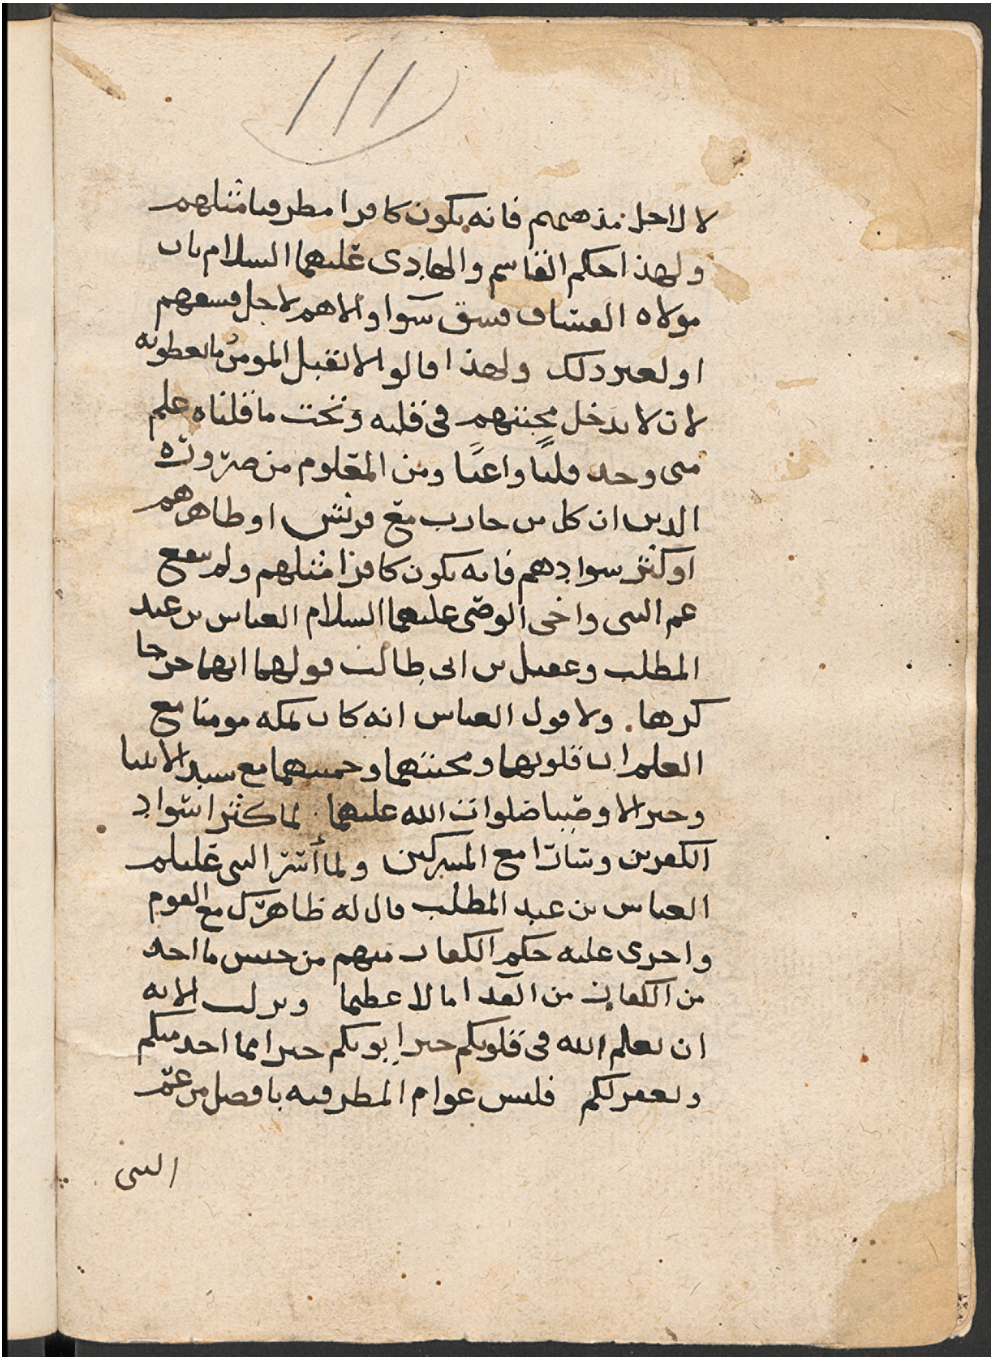 ١١١
لا لاجل مذهبهم فانه يكون كافرا مطرفيا مثلهم
ولهذا حكم القاسم والهادي عليهما السلام بان
موالاة الفساق فسق سوا والاهم لاجل فسقهم
او لغير ذلك ولهذا قالوا لا تقبل المومن ما يعطونه
لان لا يدخل محبتهم في قلبه وتحت ما قلناه علم
متى وجد قلبا واعيا ومن المعلوم من ضرورة
الدين ان كل من حارب مع قريش او ظاهرهم
او كثر سوادهم فانه يكون كافرا مثلهم ولم ينفع
عم النبي واخى الوصي عليهما السلام العباس بن عبد
المطلب وعقيل بن ابي طالب قولهما انهما خرجا
كرها. ولا قول العباس انه كان بمكه مومنا مع
العلم ان قلوبهما ومحبتهما وحميتهما مع سيد الانبيا
وخير الاوصيا صلوات الله عليهما لما كثرا سواد
الكفرين وسارا مع المشركين ولما أسر النبي عليلم
العباس بن عبد المطلب قال له ظاهرك مع القوم
واجرى عليه حكم الكفار منهم من حبس ما اخذ
من الكفار من الفدا مالا عظيما ونزلت الايه
ان يعلم الله في قلوبكم خيرا يوتكم خيرا مما اخذ منكم
ويغفر لكم فليس عوام المطرفيه بافضل من عم
النبي